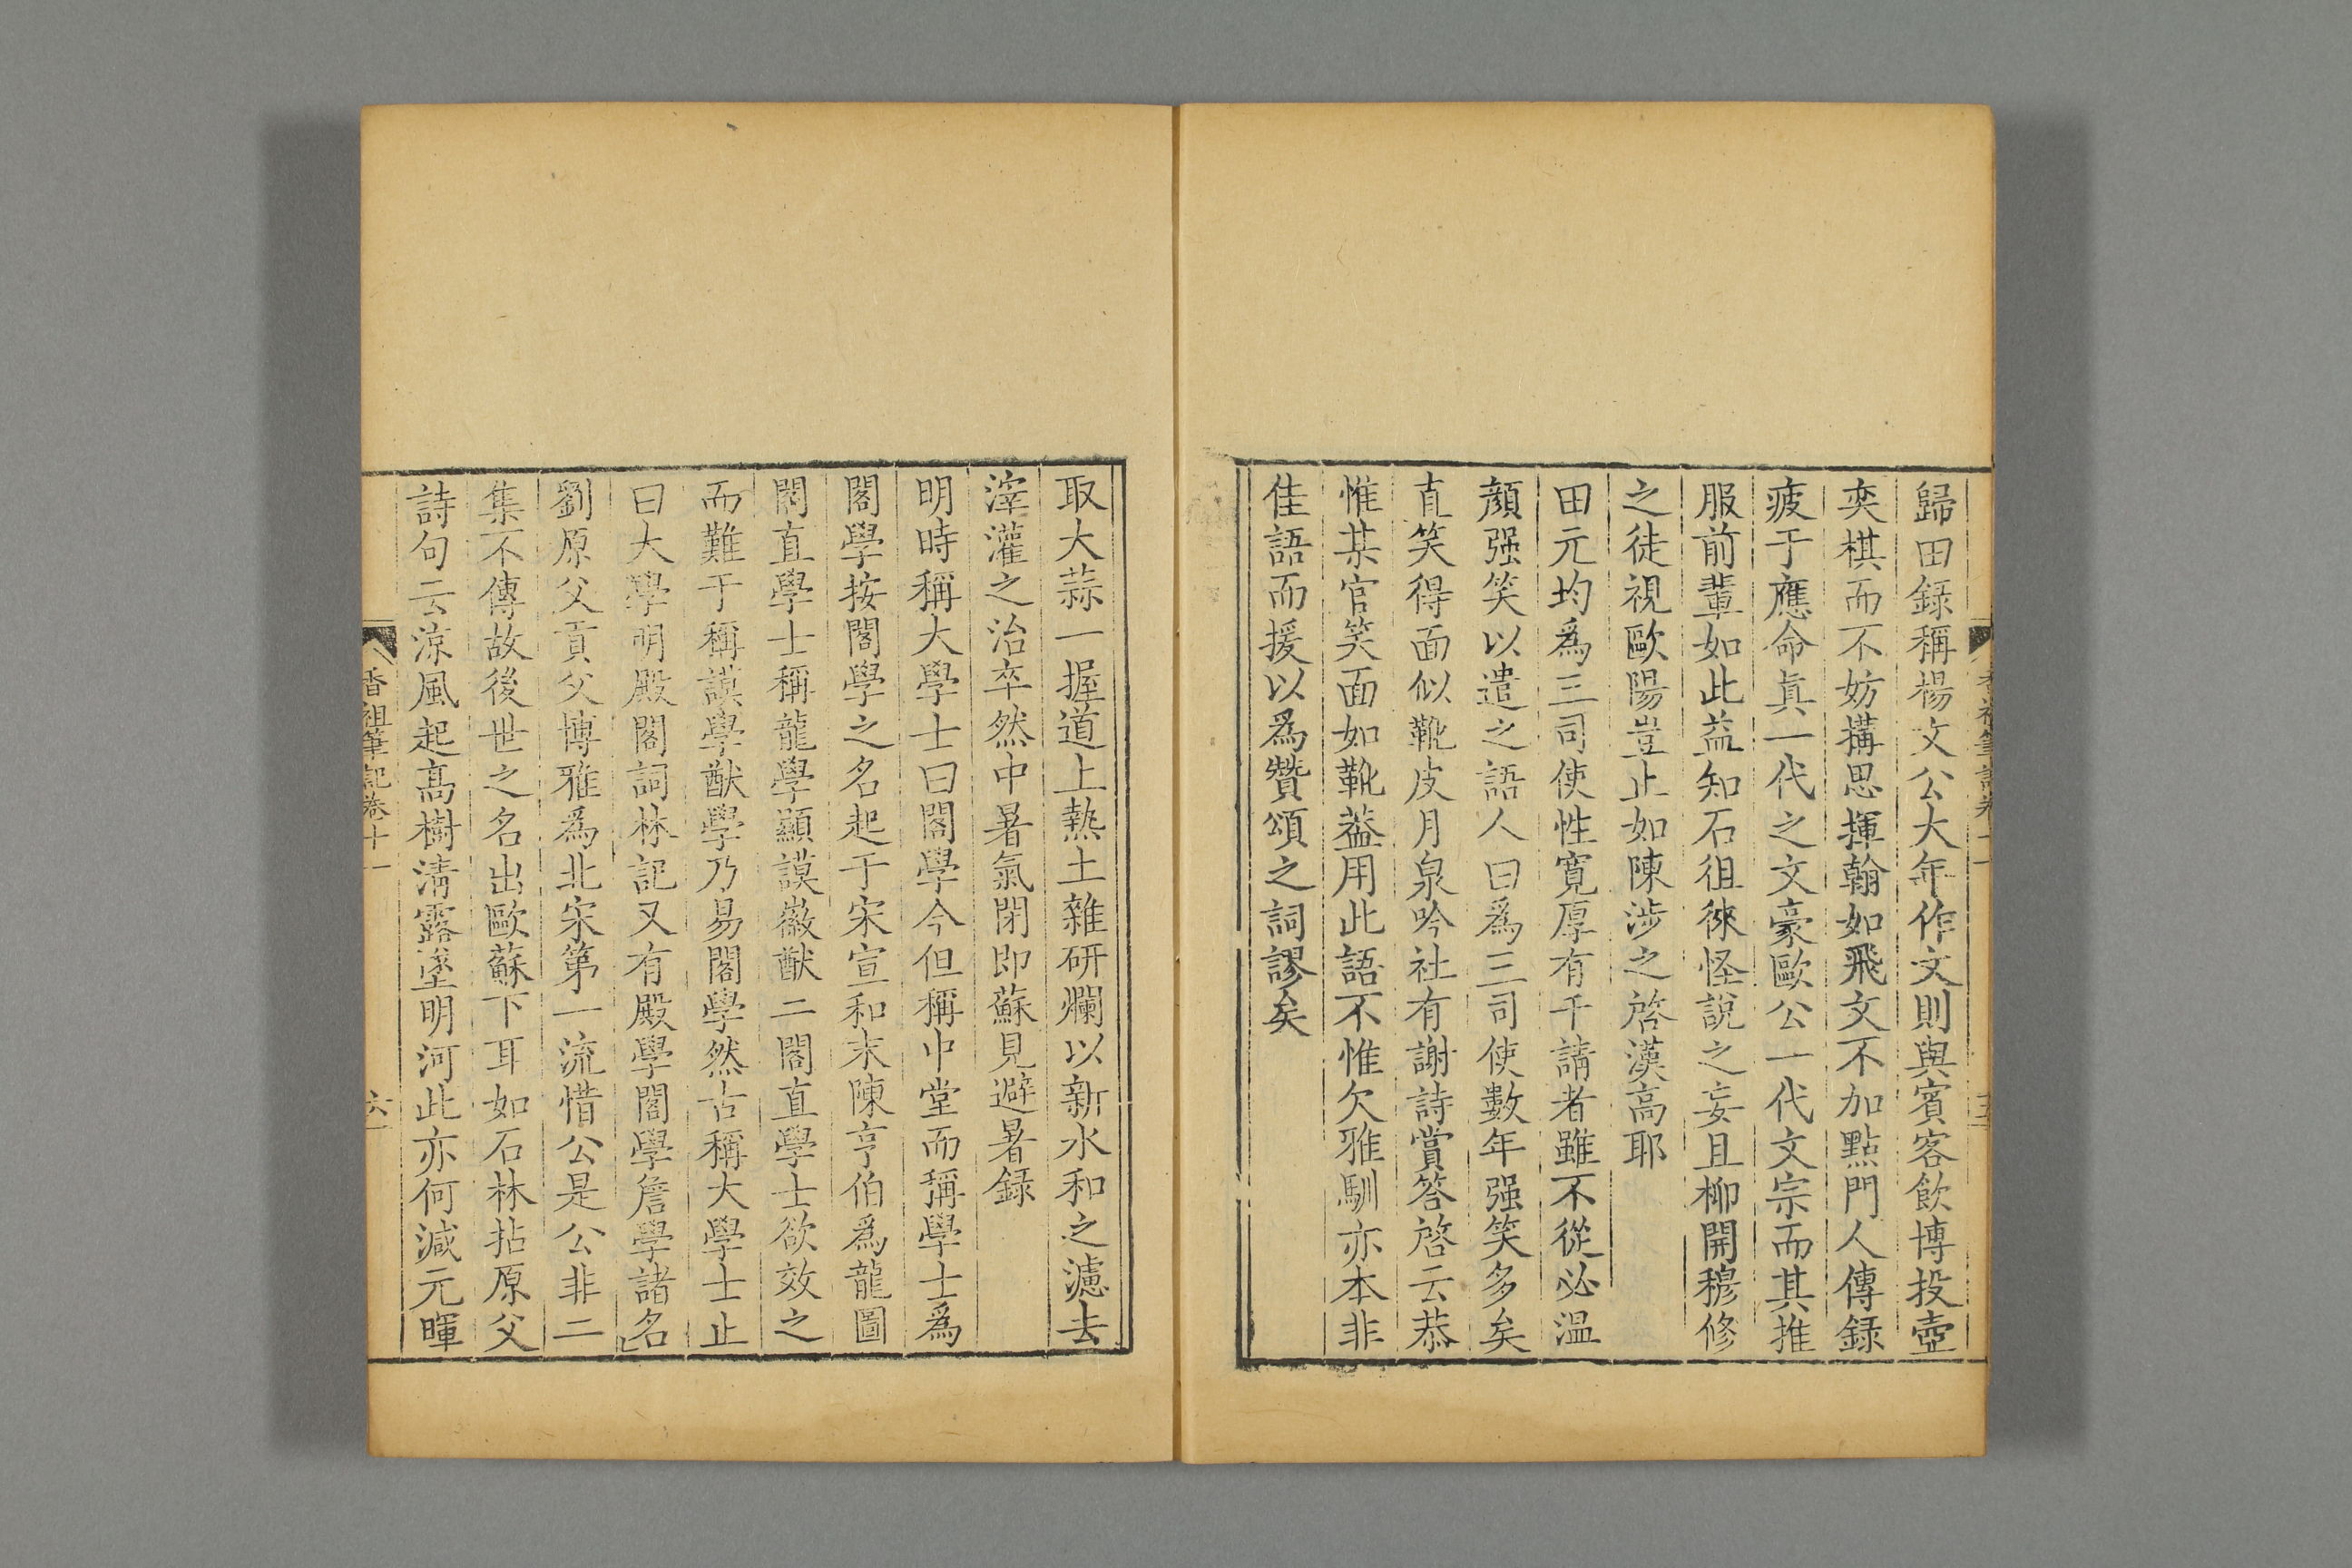 歸田録稱楊文公大年作文則與賓客飲博投壺
奕棋而不妨搆思揮翰如飛文不加點門人傳録
疲于應命眞一代之文豪歐公一代文宗而其推
服前輩如此益知石徂徠怪說之妄且柳開穆修
之徒視歐陽豈止如陳涉之啓漢高耶
田元均爲三司使性寛厚有干請者雖不從必溫
顏强笑以遣之語人曰爲三司使數年强笑多矣
直笑得面似靴皮月泉吟社有謝詩賞答啓云恭
惟某官笑面如靴葢用此語不惟欠雅馴亦本非
佳語而援以爲贊頌之詞謬矣
取大蒜一握道上熱土雜研爛以新水和之濾去
滓灌之治卒然中暑氣閉即蘇見避暑録
明時稱大學士曰閣學今但稱中堂而稱學士爲
閣學按閣學之名起于宋宣和末陳亨伯爲龍圖
閣直學士稱龍學顯謨徽猷二閣直學士欲效之
而難于稱謨學猷學乃易閣學然古稱大學士止
曰大學明殿閣詞林記又有殿學閣學詹學諸名
劉原父貢父博雅爲北宋第一流惜公是公非二
集不傳故後世之名出歐蘇下耳如石林拈原父
詩句云凉風起髙樹清露墜明河此亦何减元暉
香祖筆記卷十一
六